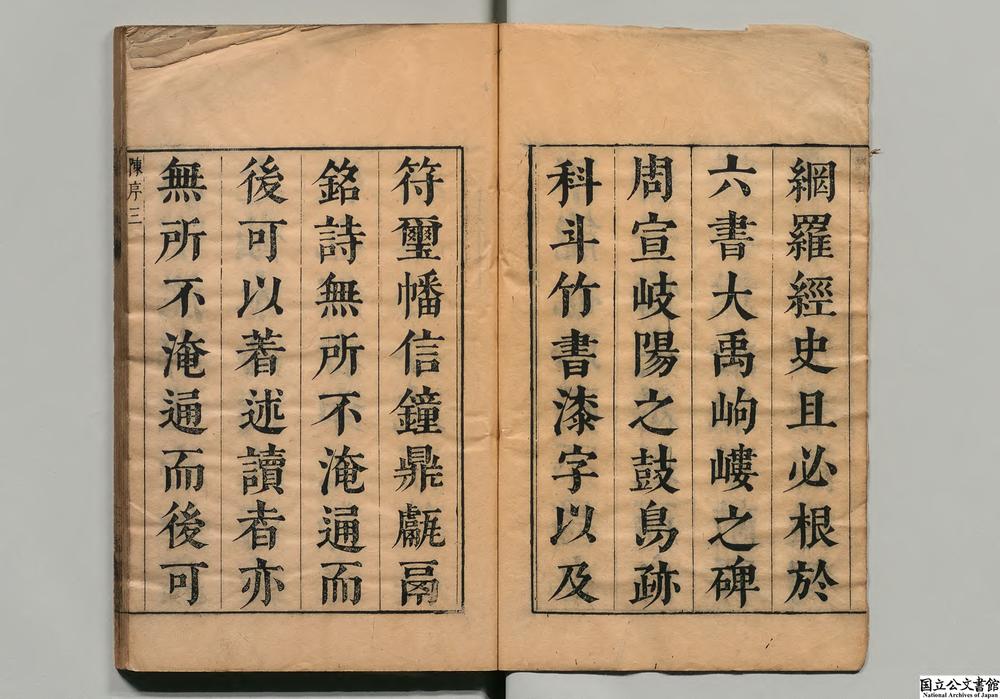 網羅經史且必根於
六書大禹岣嶁之碑
周宣岐陽之鼓鳥跡
科斗竹書漆字以及
符璽幡信鐘鼎甗鬲
銘詩無所不淹通而
後可以著述讀者亦
無所不淹通而後可
陳序三
国立公文書館
National Archives of Japan